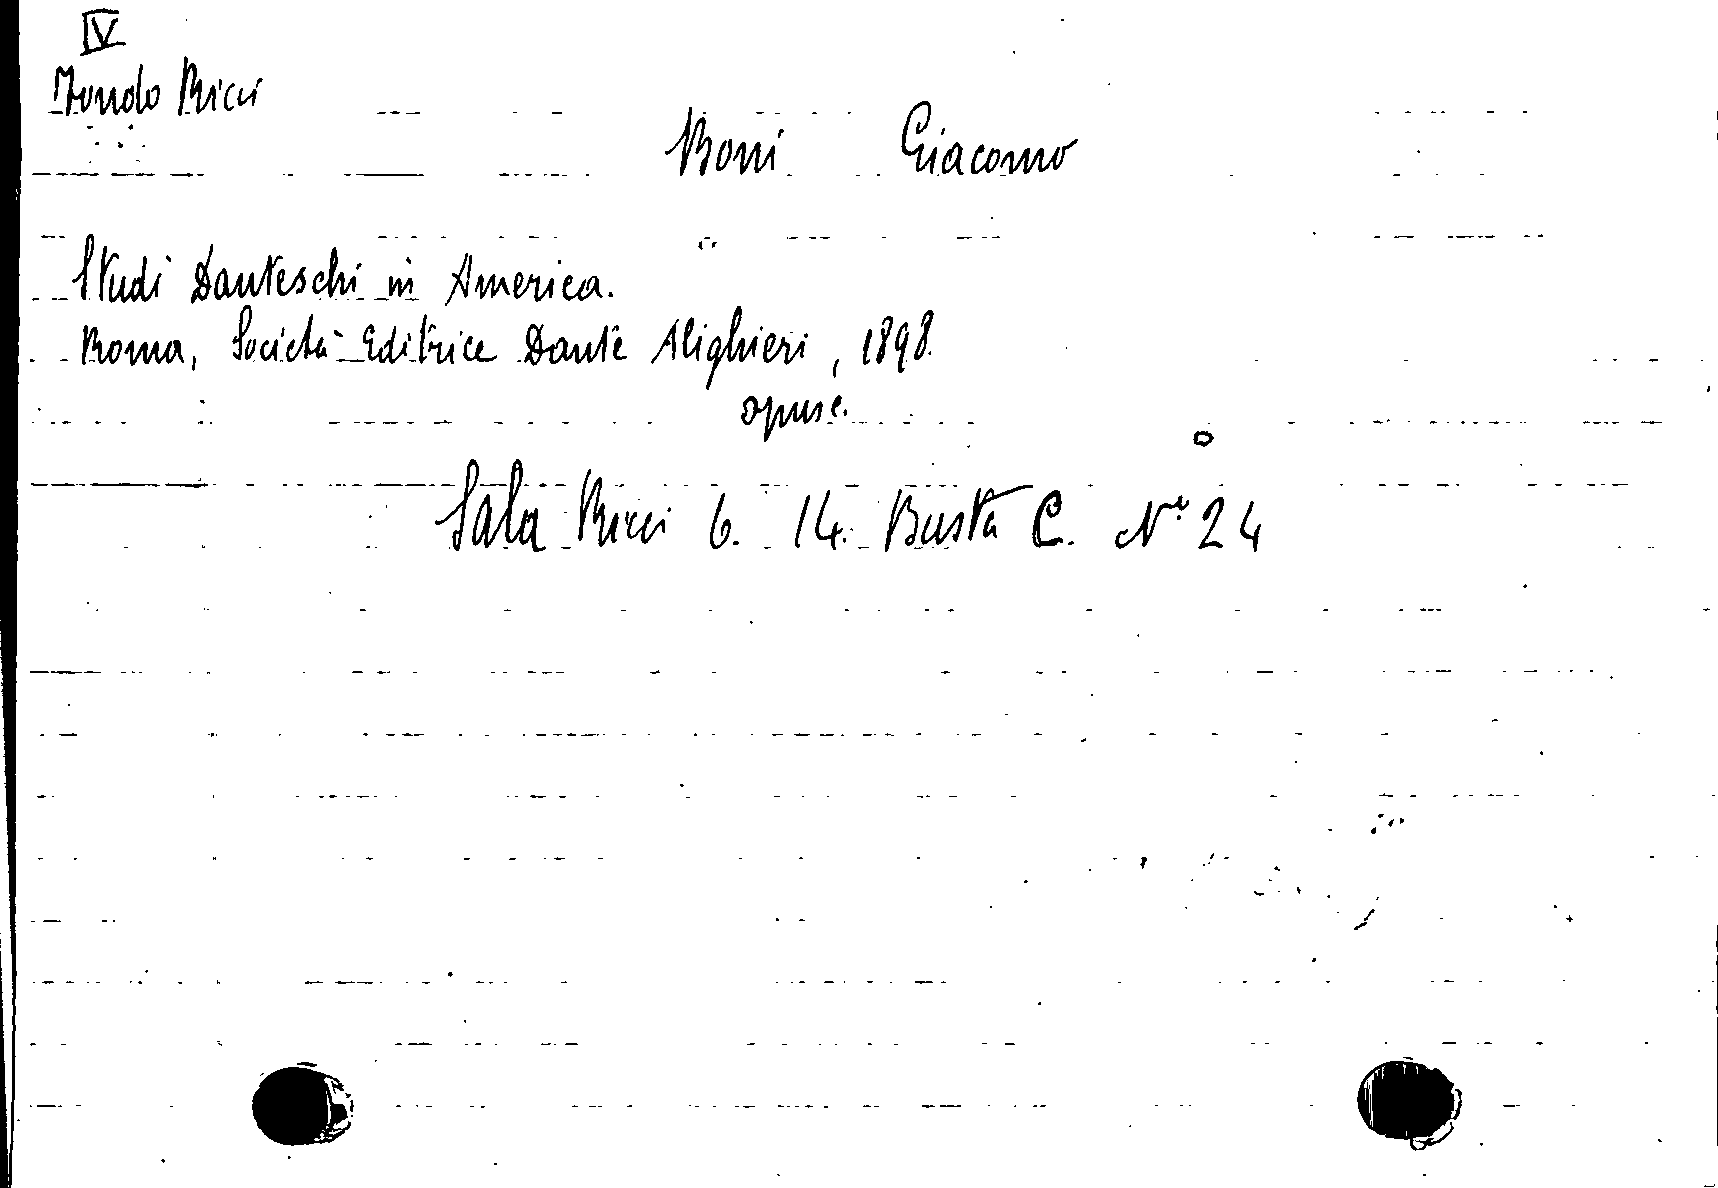 IV
Fondo Ricci
Boni Giacomo
Studi Danteschi in America.
Roma, Società Editrice Dante Alighieri, 1898.
opusc.
Sala Ricci 6. 14. Busta C. N° 24